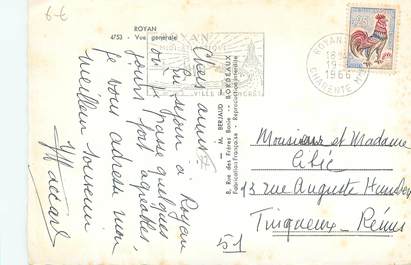 ROYAN
4753 - Vue générale
Chers amis
En séjour à Royan
où je passe quelques
jours fort agréables,
je vous adresse mon
meilleur souvenir
8, Rue des Frères Bonie — M. BERJAUD — BORDEAUX
Fabrication Française - Reproduction interdite
ROYAN
1966
CHARENTE
0,25
Monsieur et Madame
13 rue Auguste
Tinqueux - Reims
51